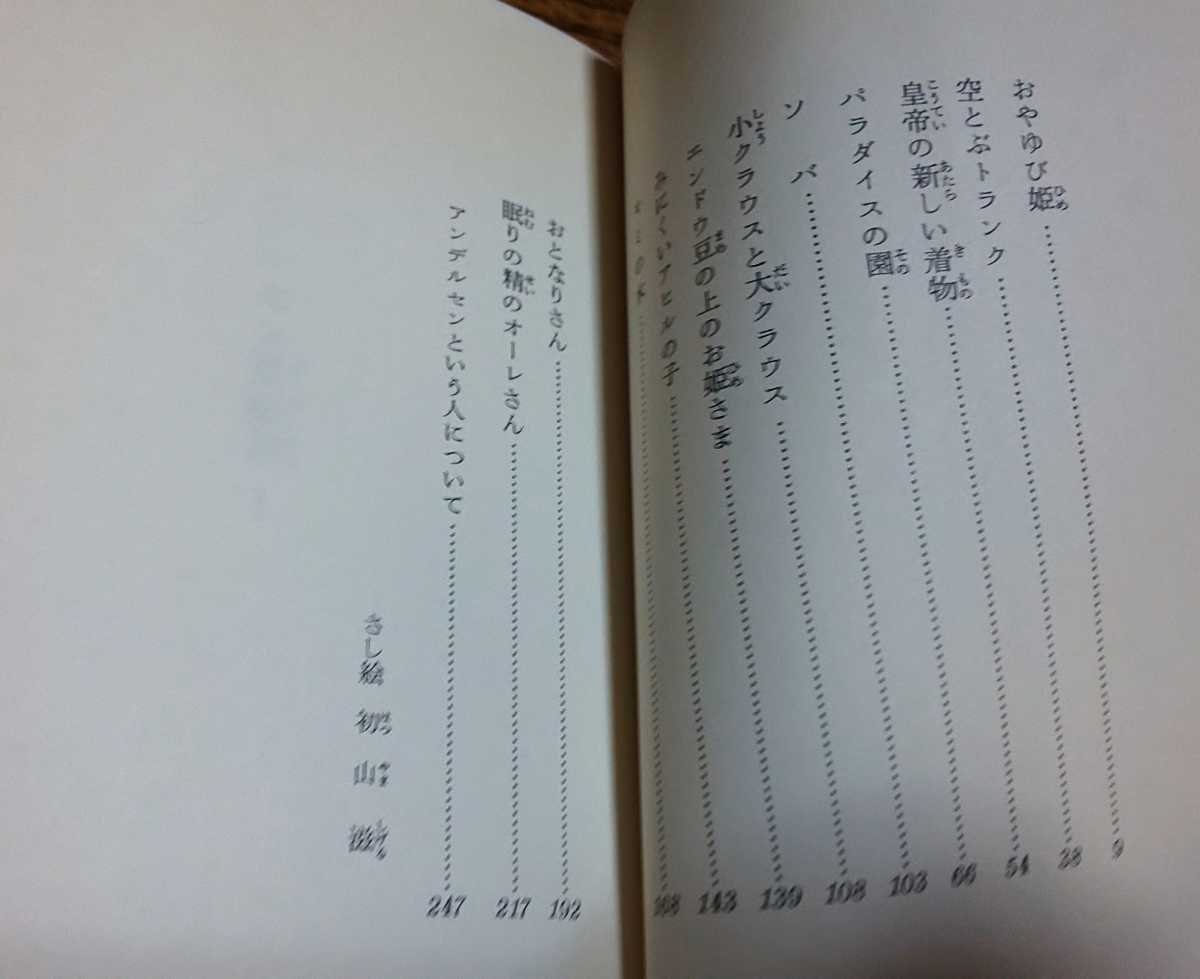 おやゆび姫……………9
空とぶトランク……………38
皇帝の新しい着物……………54
パラダイスの園……………66
ソバ……………103
小クラウスと大クラウス……………108
エンドウ豆の上のお姫さま……………139
みにくいアヒルの子……………143
モミの木……………168
おとなりさん……………192
眠りの精のオーレさん……………217
アンデルセンという人について……………247
さし絵 初山滋